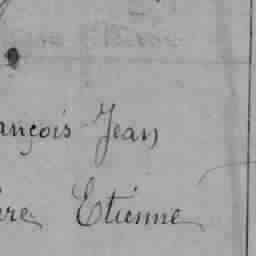 ançois Jean
ère Etienne